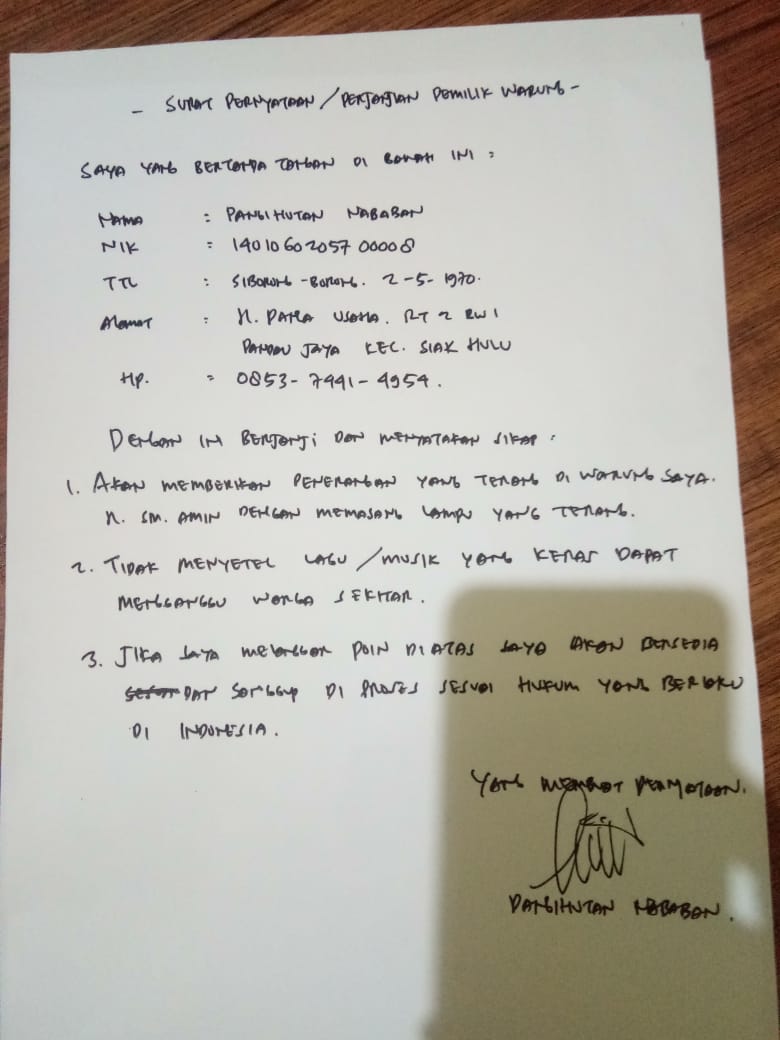 - SURAT PERNYATAAN / PERJANJIAN PEMILIK WARUNG -
SAYA YANG BERTANDA TANGAN DI BAWAH INI :
NAMA : PANGIHUTAN NABABAN
NIK : 1401060205700008
TTL : SIBORONG-BORONG. 2-5-1970.
Alamat : Jl. PATRA USAHA. RT 2 RW 1
PANDAU JAYA KEC. SIAK HULU
HP. : 0853-7441-4954.
DENGAN INI BERJANJI DAN MENYATAKAN SIKAP :
1. AKAN MEMBERIKAN PENERANGAN YANG TERANG DI WARUNG SAYA.
Jl. SM. AMIN DENGAN MEMASANG LAMPU YANG TERANG.
2. TIDAK MENYETEL LAGU / MUSIK YANG KERAS DAPAT
MENGGANGGU WARGA SEKITAR.
3. JIKA SAYA MELANGGAR POIN DIATAS SAYA AKAN BERSEDIA
DAN SANGGUP DI PROSES SESUAI HUKUM YANG BERLAKU
DI INDONESIA.
YANG MEMBUAT PERNYATAAN.
PANGIHUTAN NABABAN.